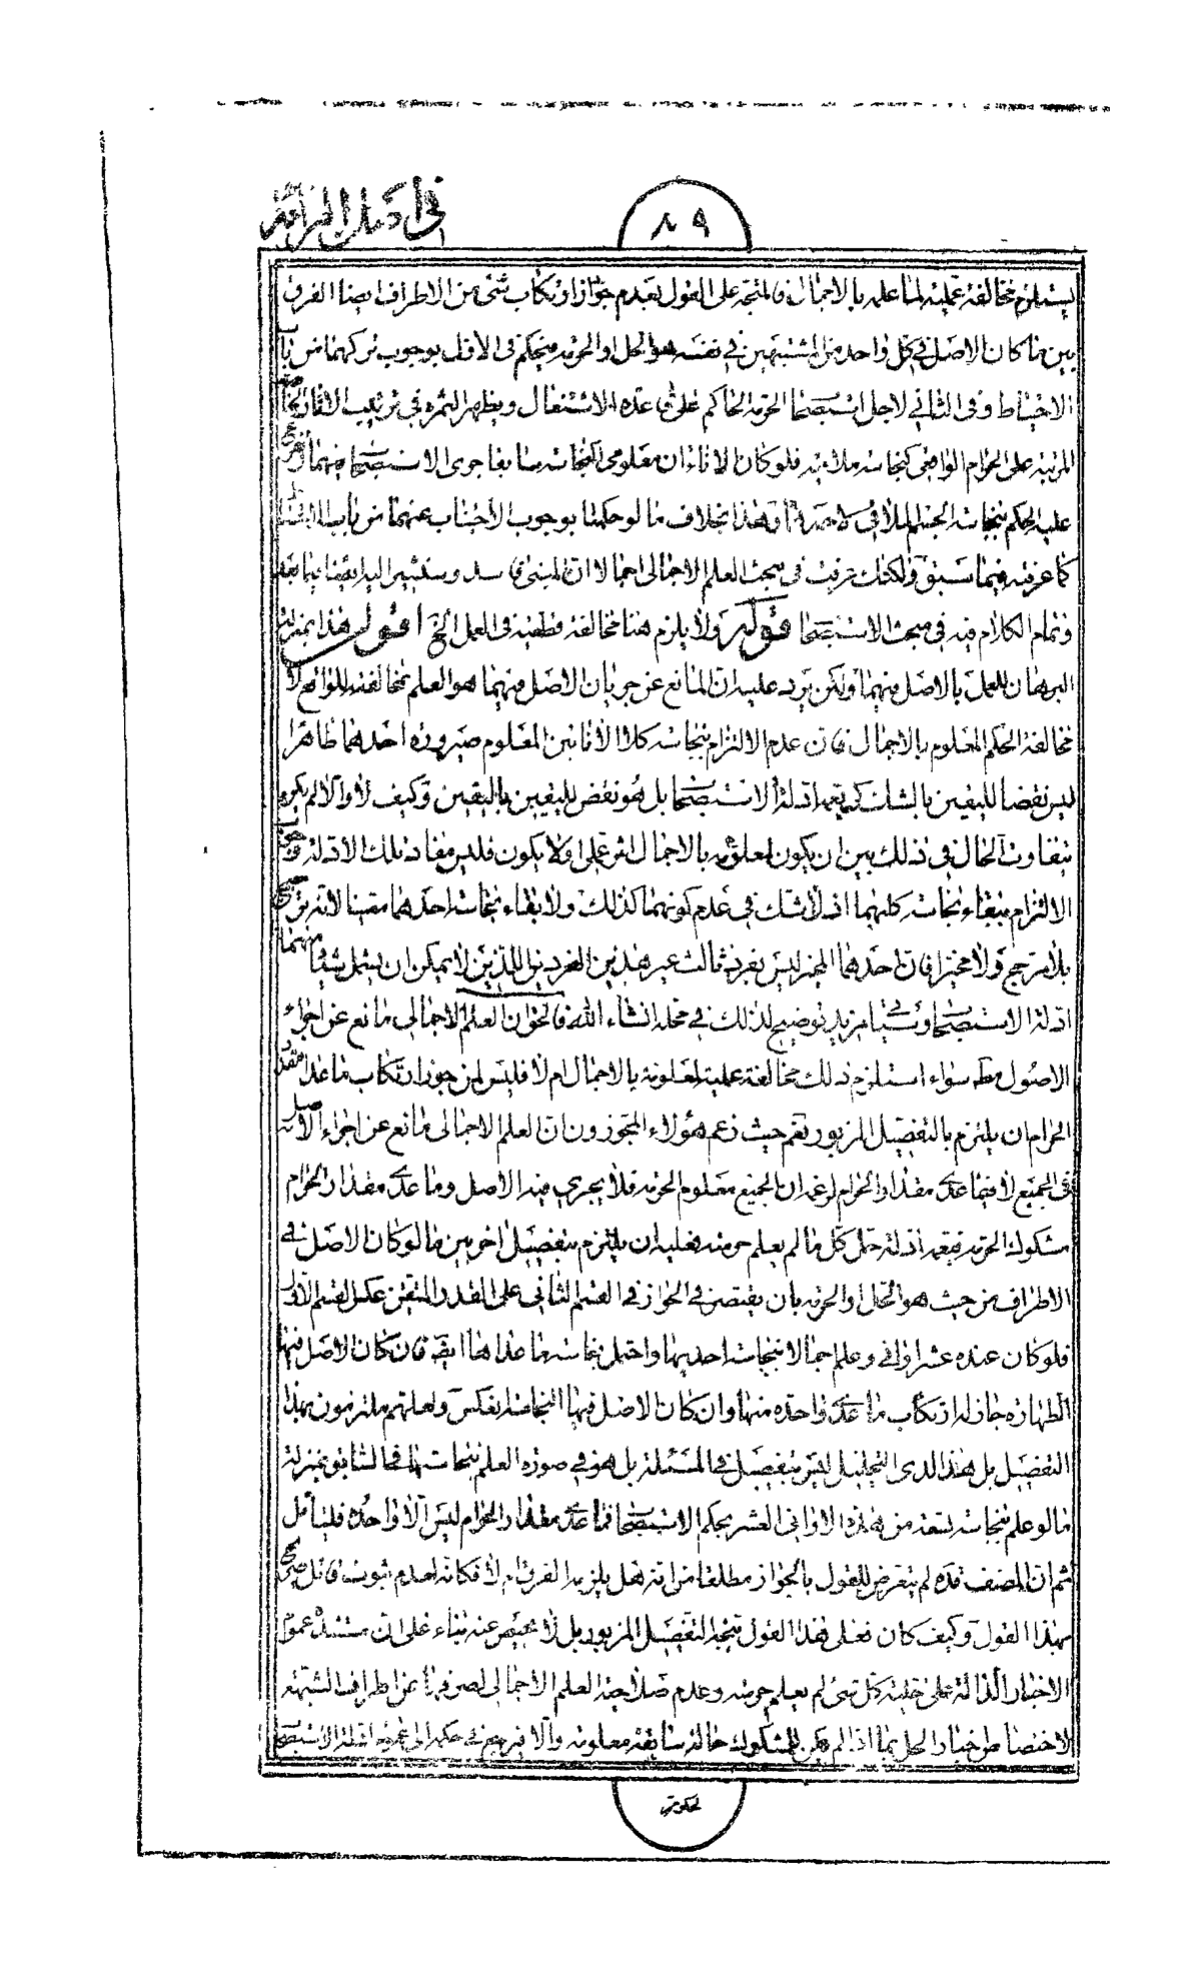 في اصل البرائة
٨٩
يستلزم مخالفة عملية لما علم بالاجمال فالمتجه على القول بعدم جواز ارتكاب شئ من الاطراف ايضا الفرق
بين ما كان الاصل في كل واحد من المشتبهين في نفسه هو الحل او الحرمة فيحكم في الاول بوجوب تركهما من باب
الاحتياط وفي الثاني لاجل استصحاب الحرمة الحاكم على قاعدة الاشتغال ويظهر الثمرة في ترتيب الاثار
المرتبة على الحرام الواقعي كنجاسة ملاقيه فلو كان الاناءان معلومي النجاسة سابقا جرى الاستصحاب فيهما
عليه الحكم بنجاسة الجسم الملاقي لاحدهما وهذا بخلاف ما لو حكمنا بوجوب الاجتناب عنهما من باب
كما عرفته فيما سبق ولكنك عرفت في مبحث العلم الاجمالي اجمالا ان المبنى فاسد وسنشير اليه ايضا فيما بعد
وتمام الكلام فيه في مبحث الاستصحاب قوله ولا يلزم هنا مخالفة قطعية في العمل الخ اقول هذا بمنزلة
البرهان للعمل بالاصل فيهما ولكن يرد عليه ان المانع عن جريان الاصل فيهما هو العلم بمخالفته للواقع لا
مخالفة الحكم المعلوم بالاجمال فان عدم الالتزام بنجاسة كلا الانائين المعلوم صيرورة احدهما طاهرا
ليس نقضا لليقين بالشك كي يعمه ادلة الاستصحاب بل هو نقض لليقين باليقين وكيف لا والا لم يكن
يتفاوت الحال في ذلك بين ان يكون لمعلومه بالاجمال اثر عملي او لا يكون فليس مفاد تلك الادلة وجوب
الالتزام ببقاء نجاسة كليهما اذ لا شك في عدم كونهما كذلك ولا بقاء نجاسة احدهما معينا لانه ترجيح
بلا مرجح ولا مخيرا فان احدهما المخير ليس بفرد ثالث غير هذين الفردين اللذين لا يمكن ان يشمل شيئا منهما
ادلة الاستصحاب وسيأتي مزيد توضيح لذلك في محله انشاء الله فالحق ان العلم الاجمالي مانع عن اجراء
الاصول مط سواء استلزم ذلك مخالفة عملية لمعلومه بالاجمال ام لا فليس لمن جوز ارتكاب ما عدا مقدار
الحرام ان يلتزم بالتفصيل المزبور نعم حيث زعم هؤلاء المجوزون ان العلم الاجمالي مانع عن اجراء الاصل
في الجميع لا فيما عدى مقدار الحرام لزعمه ان الجميع معلوم الحرمة فلا يجري فيه الاصل وما عدى مقدار الحرام
مشكوك الحرمة فيعمه ادلة حل كل ما لم يعلم حرمته فعليه ان يلتزم بتفصيل اخر بين ما لو كان الاصل في
الاطراف من حيث هو الحل او الحرمة بان يقتصر في الجواز في القسم الثاني على القدر المتيقن عكس القسم الاول
فلو كان عنده عشر اواني وعلم اجمالا بنجاسة احديها واحتمل نجاسة ما عداها ايضا فان كان الاصل فيها
الطهارة جاز له ارتكاب ما عدى واحدة منها وان كان الاصل فيها النجاسة انعكس ولعلهم ملتزمون بهذا
التفصيل بل هذا لدى التحليل ليس بتفصيل في المسئلة بل هو في صورة العلم بنجاستها في السابق بمنزلة
ما لو علم بنجاسة تسعة من هذه الاواني العشر بحكم الاستصحاب فما عدى مقدار الحرام ليس الا واحدة فليتأمل
ثم ان المصنف قده لم يتعرض للقول بالجواز مطلقا من انه هل يلزمه الفرق ام لا فكانه لعدم ثبوت قائل صريح
بهذا القول وكيف كان فعلى هذا القول يتجه التفصيل المزبور بل لا محيص عنه بناء على ان مستنده عموم
الاخبار الدالة على حلية كل شئ لم يعلم حرمته وعدم صلاحية العلم الاجمالي لصرفها عن اطراف الشبهة
لاختصاص اخبار الحل بما اذا لم يكن للمشكوك حالة سابقة معلومة والا فيرجع في حكمه الى عموم ادلة الاستصحاب
لحكومته